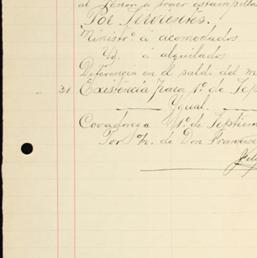 al
Por Sirvientes.
Ministrº á acomodados
Id. á alquilados
Diferencia en el saldo del m
31 Existencia para 1º de Sep
Ygual
Covadonga y 1º de Septiem
Por de Don Francisco